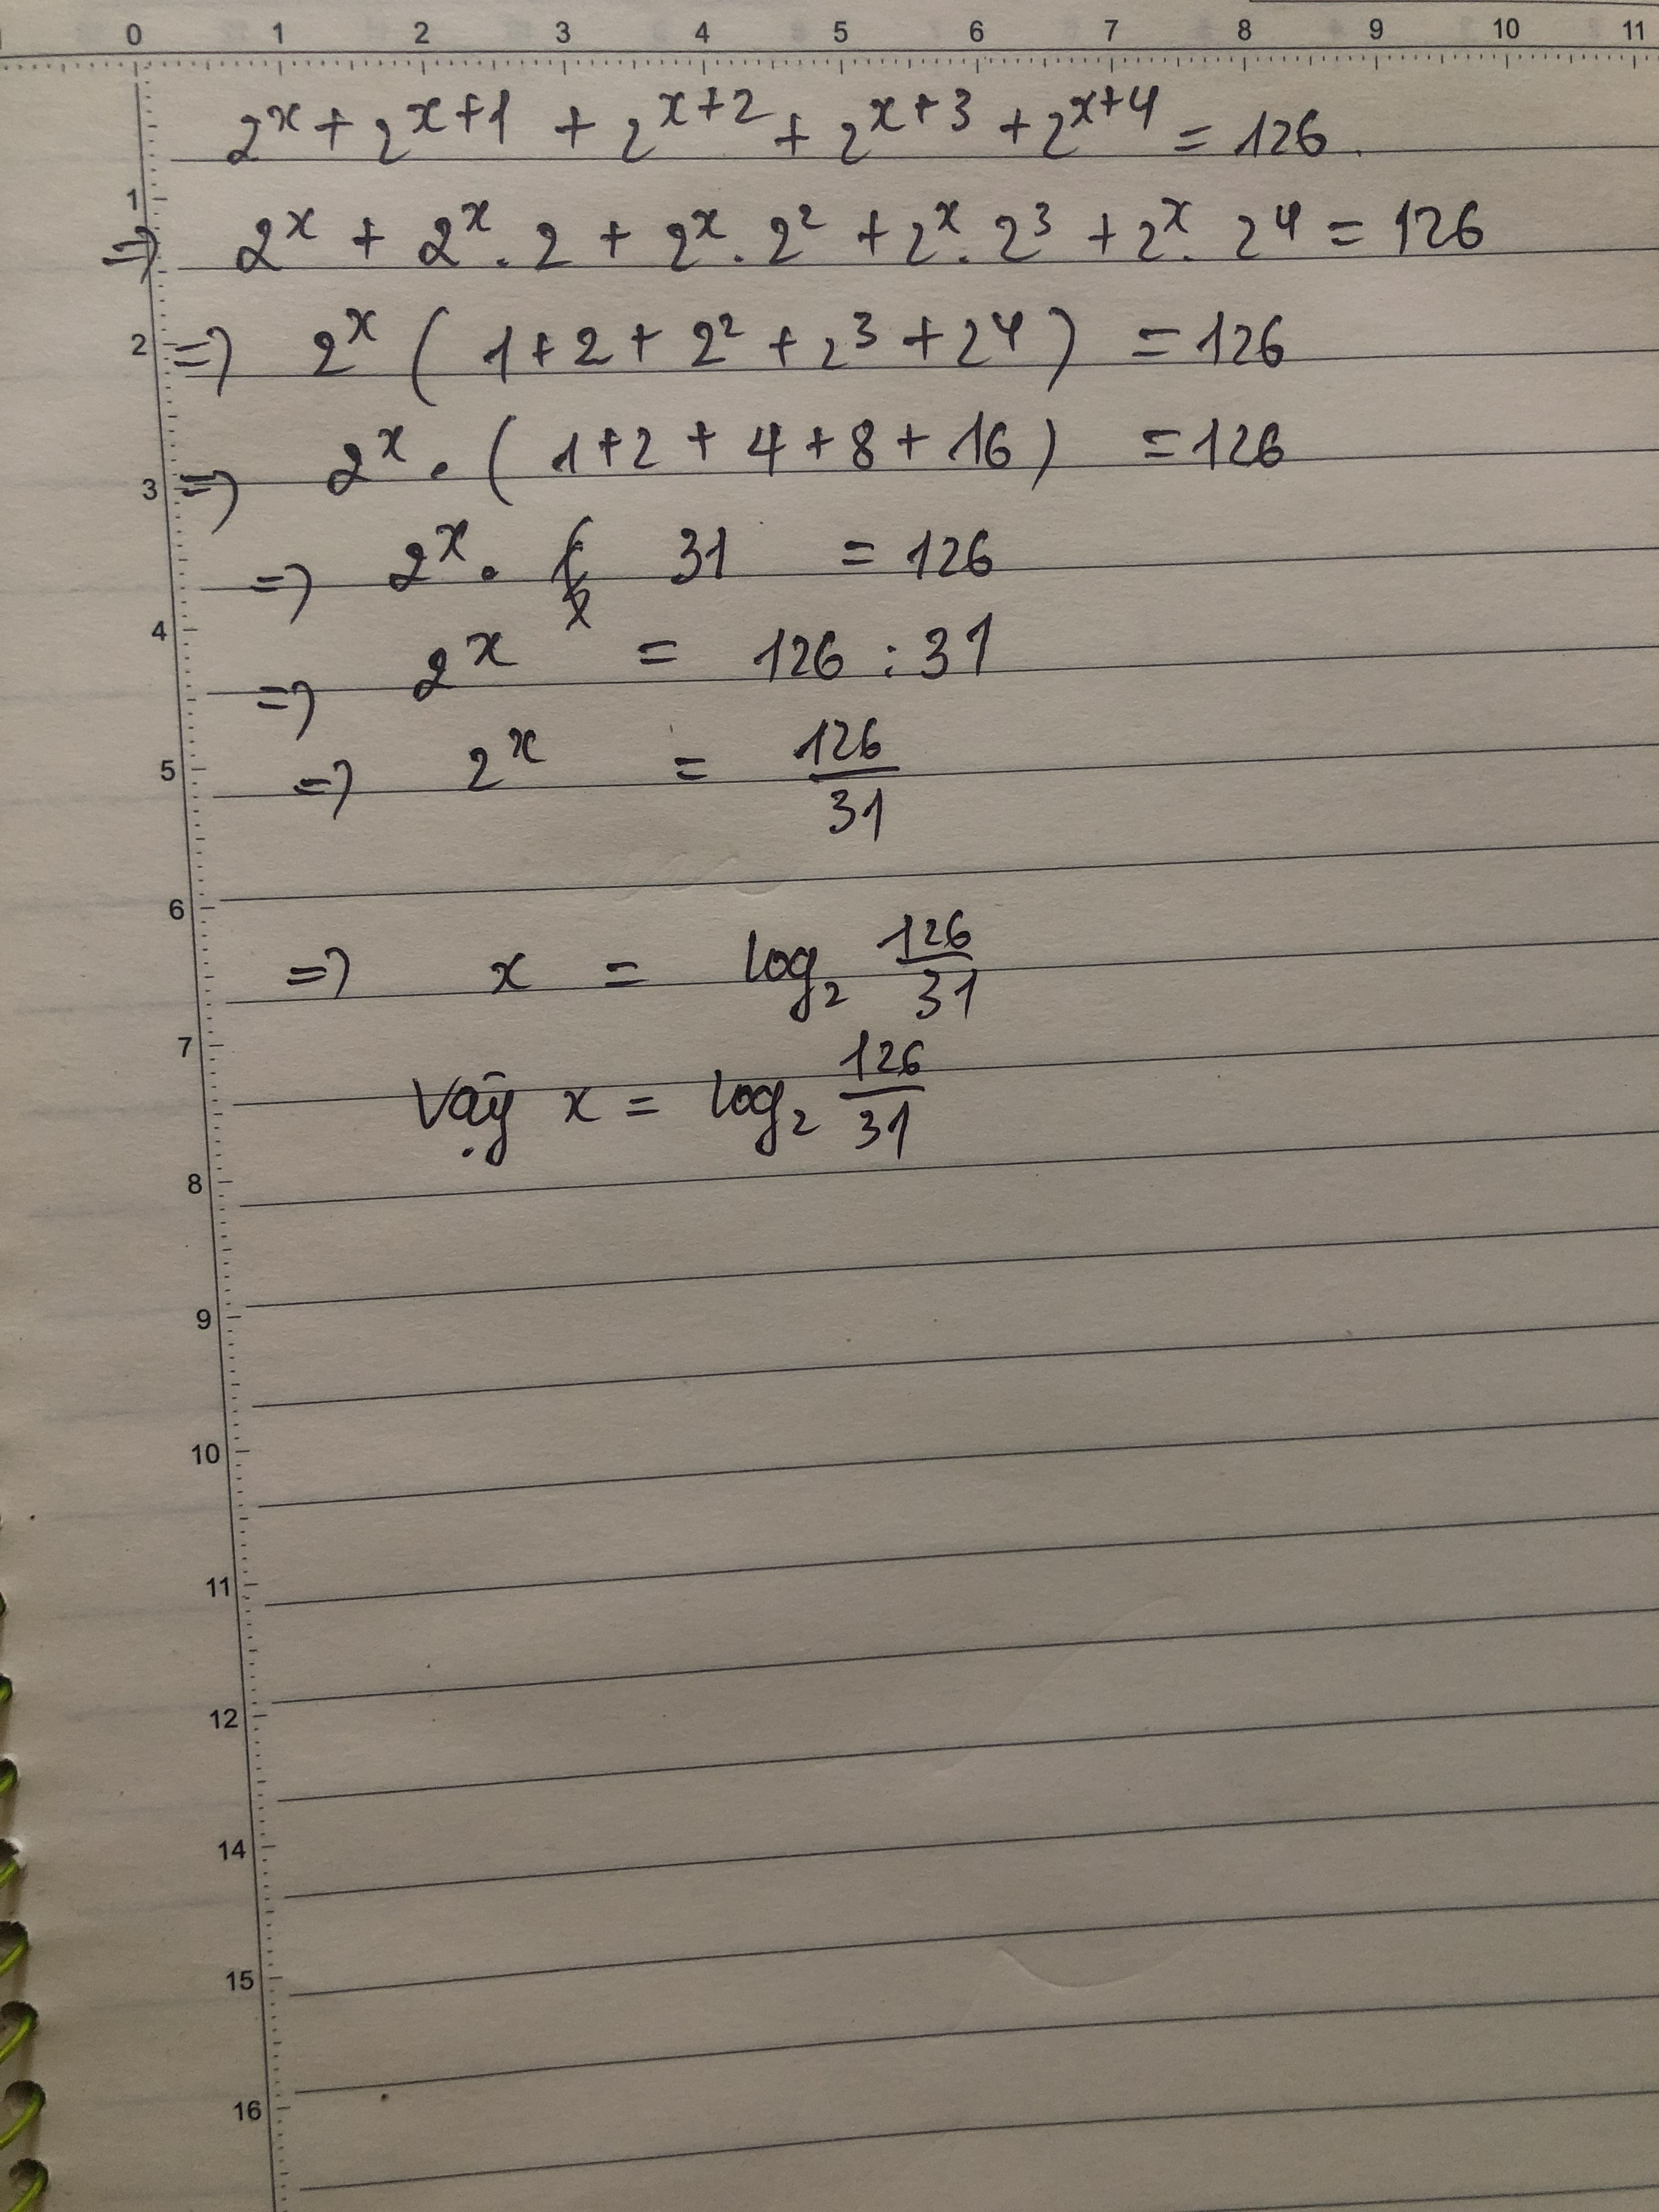 0 1 2 3 4 5 6 7 8 9 10 11
2^x + 2^{x+1} + 2^{x+2} + 2^{x+3} + 2^{x+4} = 126.
1
=> 2^x + 2^x . 2 + 2^x . 2^2 + 2^x . 2^3 + 2^x . 2^4 = 126
2 => 2^x ( 1 + 2 + 2^2 + 2^3 + 2^4 ) = 126
3 => 2^x . ( 1 + 2 + 4 + 8 + 16 ) = 126
=> 2^x . 31 = 126
4
=> 2^x = 126 : 31
5 => 2^x = \frac{126}{31}
6
=> x = log_2 \frac{126}{31}
7
Vậy x = log_2 \frac{126}{31}
8
9
10
11
12
14
15
16